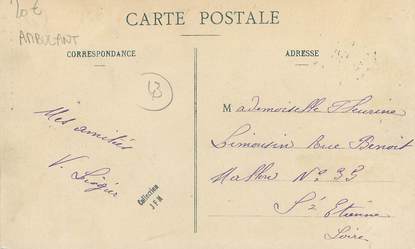 20€
AMBULANT
CARTE POSTALE
CORRESPONDANCE
ADRESSE
13
Mes amitiés
V.
Collection
J F M
Mademoiselle Fleurine
Limousin Rue Benoit
Malon N° 35
St Etienne
Loire